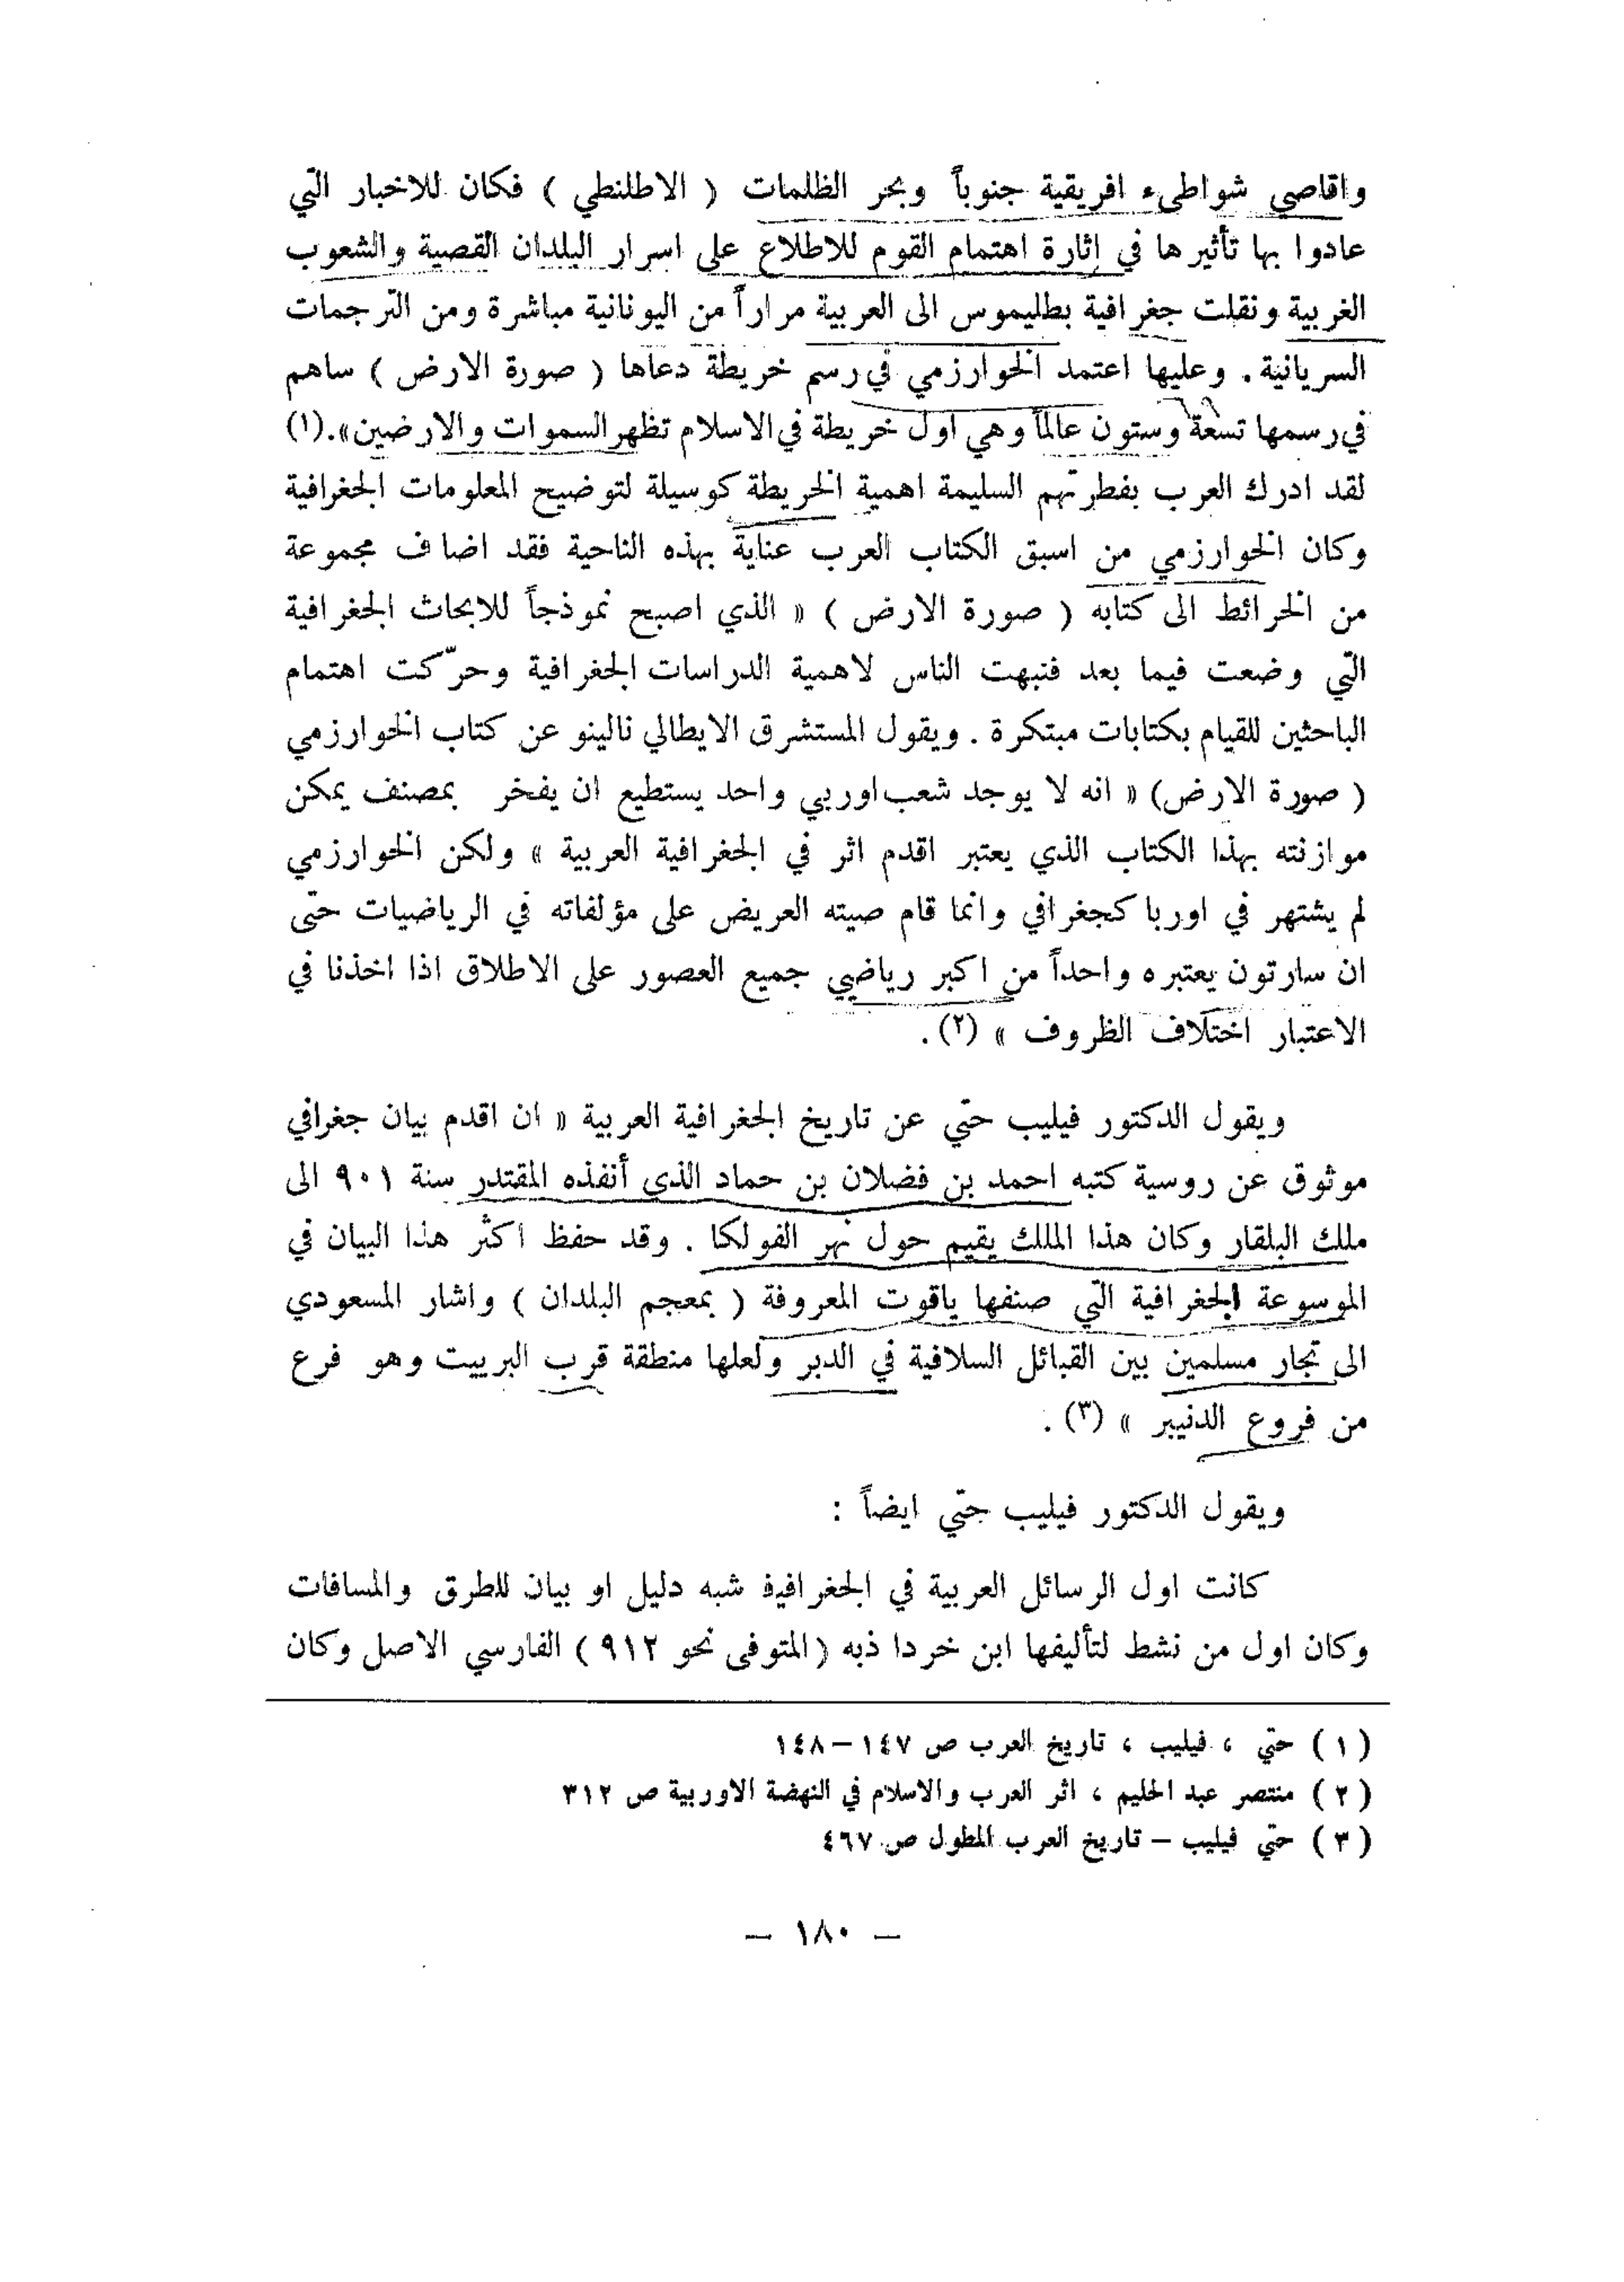 واقاصي شواطىء افريقية جنوباً وبحر الظلمات ( الاطلنطي ) فكان للاخبار التي
عادوا بها تأثيرها في إثارة اهتمام القوم للاطلاع على اسرار البلدان القصية والشعوب
الغربية ونقلت جغرافية بطليموس الى العربية مراراً من اليونانية مباشرة ومن الترجمات
السريانية . وعليها اعتمد الخوارزمي في رسم خريطة دعاها ( صورة الارض ) ساهم
في رسمها تسعة وستون عالماً وهي اول خريطة في الاسلام تظهر السموات والارضين» .(١)
لقد ادرك العرب بفطرتهم السليمة اهمية الخريطة كوسيلة لتوضيح المعلومات الجغرافية
وكان الخوارزمي من اسبق الكتاب العرب عناية بهذه الناحية فقد اضاف مجموعة
من الخرائط الى كتابه ( صورة الارض ) « الذي اصبح نموذجاً للابحاث الجغرافية
التي وضعت فيما بعد فنبهت الناس لاهمية الدراسات الجغرافية وحرّكت اهتمام
الباحثين للقيام بكتابات مبتكرة . ويقول المستشرق الايطالي نالينو عن كتاب الخوارزمي
( صورة الارض) « انه لا يوجد شعب اوربي واحد يستطيع ان يفخر بمصنف يمكن
موازنته بهذا الكتاب الذي يعتبر اقدم اثر في الجغرافية العربية » ولكن الخوارزمي
لم يشتهر في اوربا كجغرافي وانما قام صيته العريض على مؤلفاته في الرياضيات حتى
ان سارتون يعتبره واحداً من اكبر رياضيي جميع العصور على الاطلاق اذا اخذنا في
الاعتبار اختلاف الظروف » (٢) .
ويقول الدكتور فيليب حتي عن تاريخ الجغرافية العربية « ان اقدم بيان جغرافي
موثوق عن روسية كتبه احمد بن فضلان بن حماد الذي أنفذه المقتدر سنة ٩٠١ الى
ملك البلقار وكان هذا الملك يقيم حول نهر الفولكا . وقد حفظ اكثر هذا البيان في
الموسوعة الجغرافية التي صنفها ياقوت المعروفة ( بمعجم البلدان ) واشار المسعودي
الى تجار مسلمين بين القبائل السلافية في الدبر ولعلها منطقة قرب البرييت وهو فرع
من فروع الدنيبر » (٣) .
ويقول الدكتور فيليب حتي ايضاً :
كانت اول الرسائل العربية في الجغرافية شبه دليل او بيان للطرق والمسافات
وكان اول من نشط لتأليفها ابن خردا ذبه (المتوفى نحو ٩١٢ ) الفارسي الاصل وكان
( ١ ) حتي ، فيليب ، تاريخ العرب ص ١٤٧ – ١٤٨
( ٢ ) منتصر عبد الحليم ، اثر العرب والاسلام في النهضة الاوربية ص ٣١٢
( ٣ ) حتي فيليب – تاريخ العرب المطول ص ٤٦٧
– ١٨٠ –